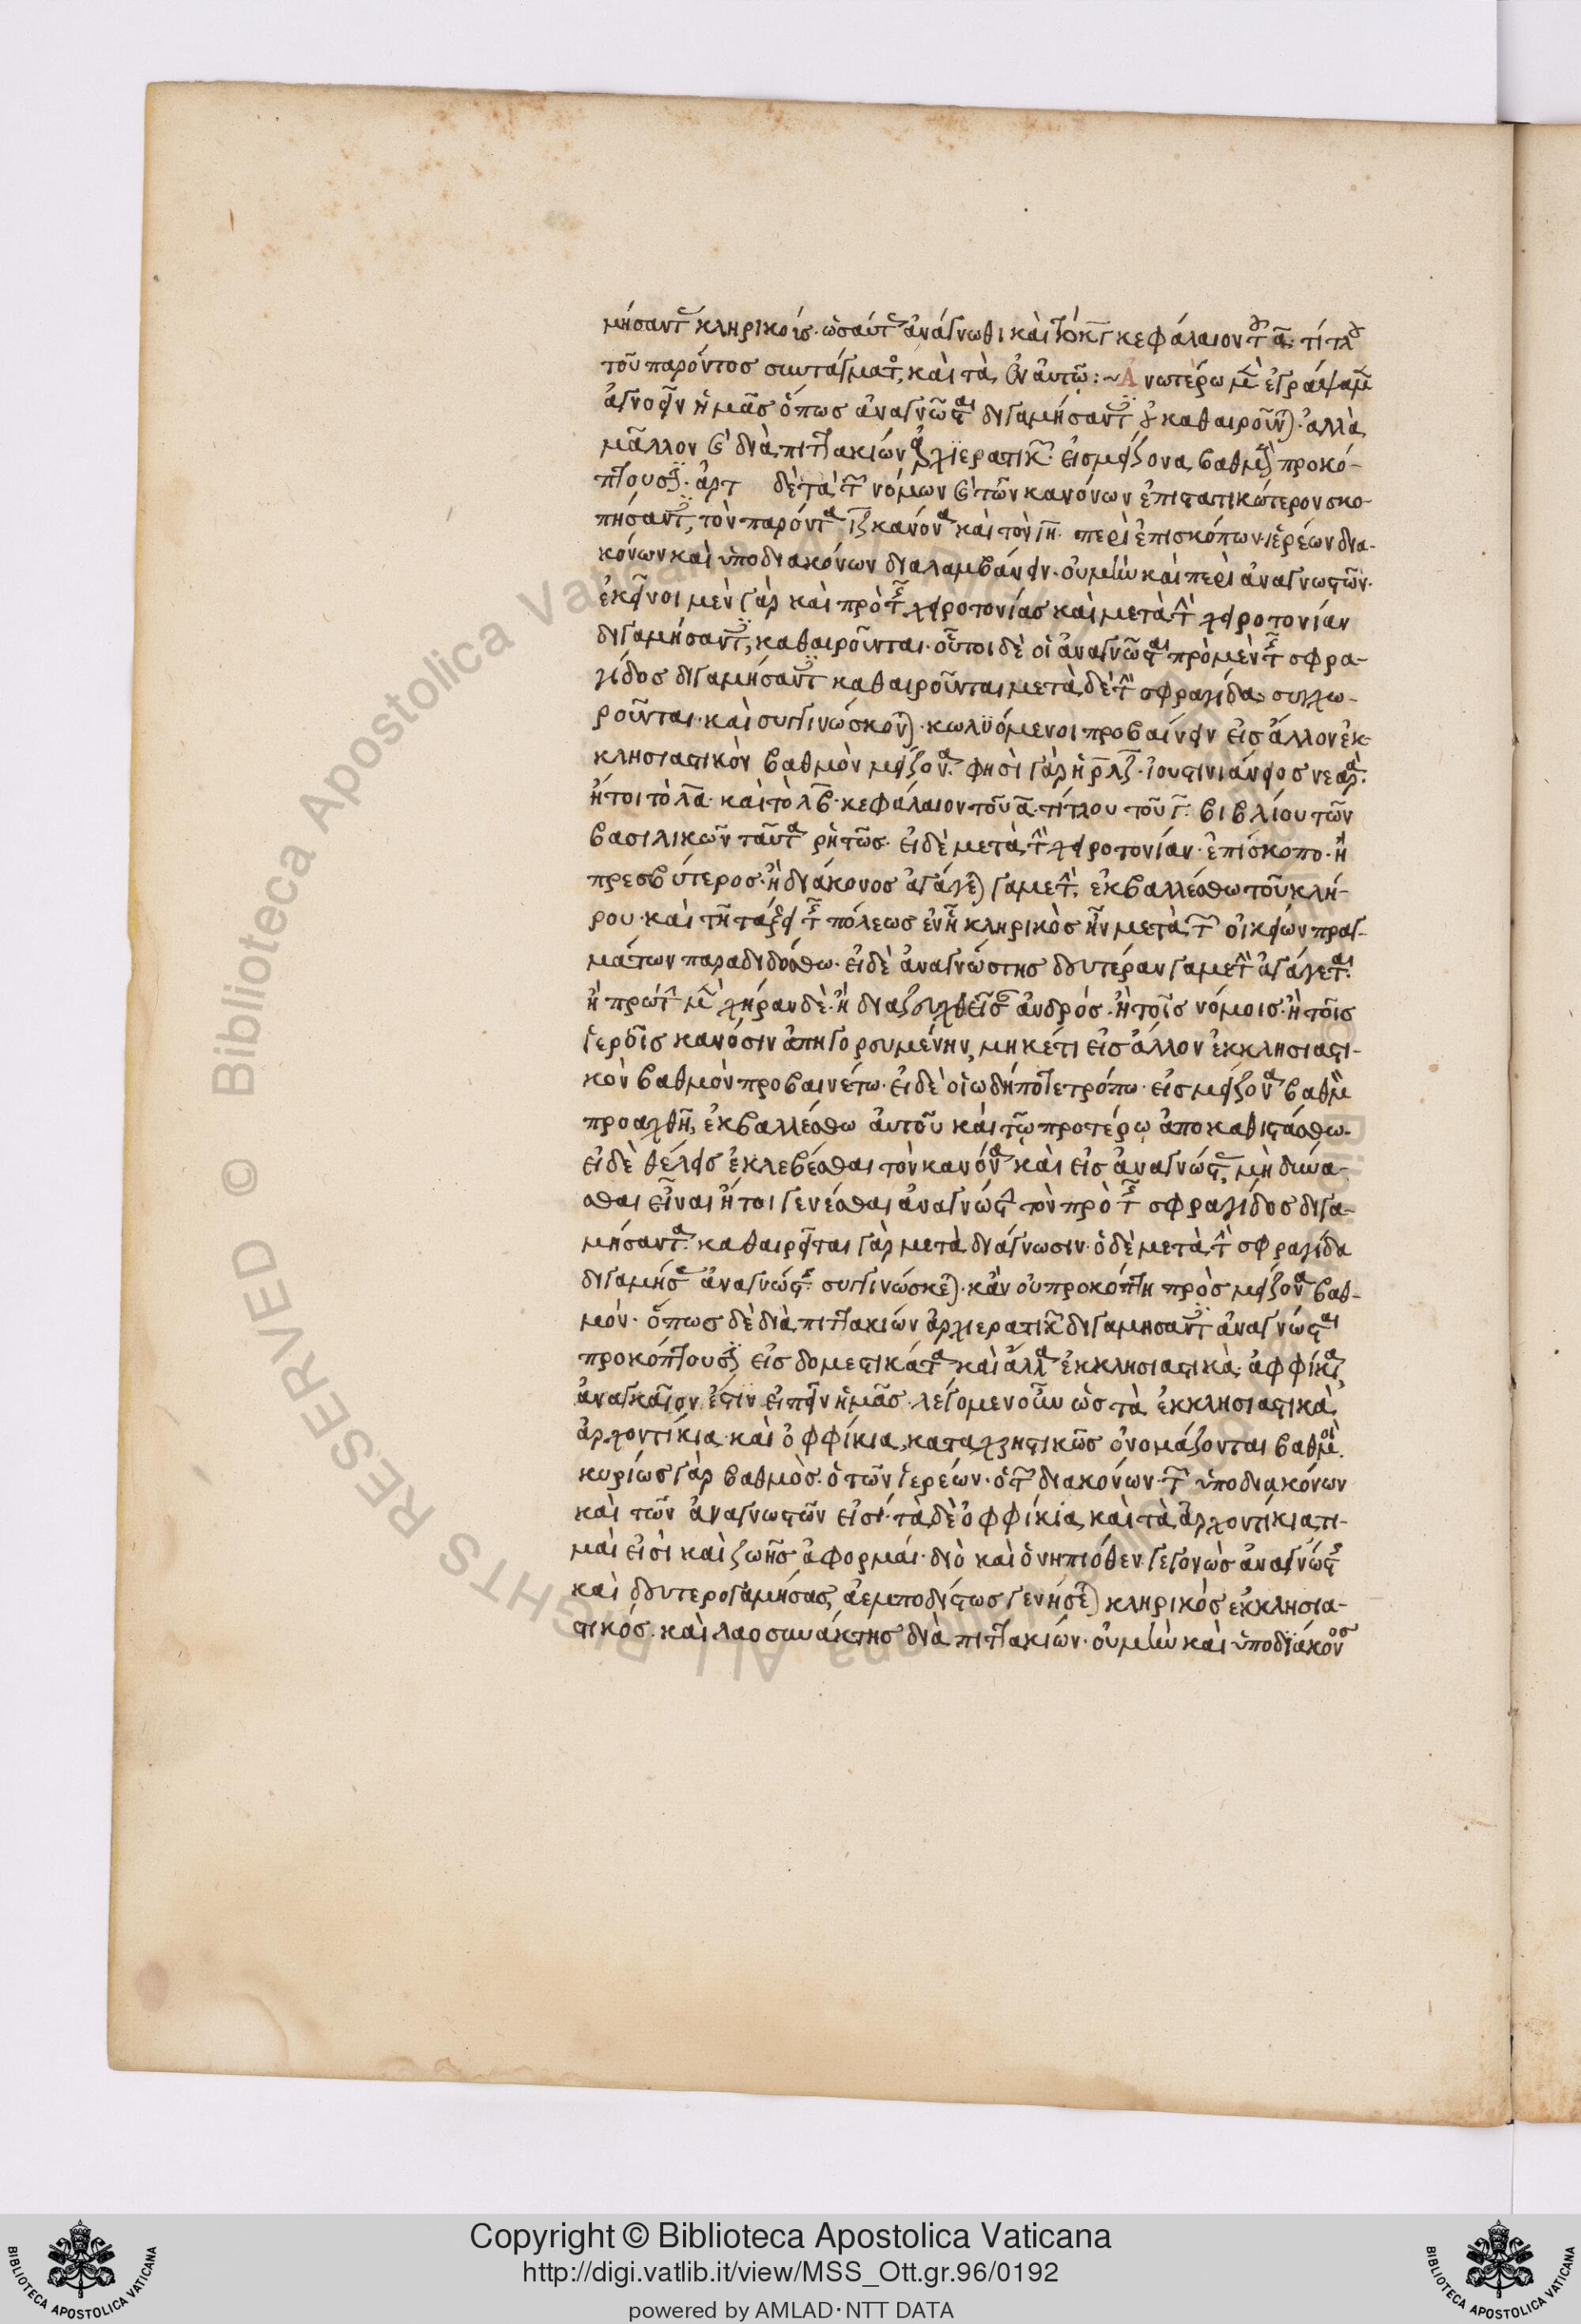 μήσαντ κληρικοίς. ὡσαύτ ἀνάγνωθι καὶ τὸ κγ κεφάλαιον τοῦ α. τίτλου
τοῦ παρόντος συντάγματος, καὶ τὰ ἐν αὐτῷ :~ Ἀνωτέρω μὲν ἐγράψαμεν
ἀγνοεῖν ἡμᾶς ὅπως ἀναγνῶσται διγαμήσαντες οὐ καθαιροῦνται. ἀλλὰ
μᾶλλον καὶ διὰ πιττακίων ἀρχιερατικῶν εἰς μείζονα βαθμὸν προκό-
πτουσι. ἄρτι δὲ τὰ τῶν νόμων καὶ τῶν κανόνων ἐπιστατικώτερον σκο-
πήσαντες, τὸν παρόντα ιζ κανόνα καὶ τὸν ιη. περὶ ἐπισκόπων. ἱερέων δια-
κόνων καὶ ὑποδιακόνων διαλαμβάνειν. οὐ μὴν καὶ περὶ ἀναγνωστῶν.
ἐκεῖνοι μὲν γὰρ καὶ πρὸ τῆς χειροτονίας καὶ μετὰ τὴν χειροτονίαν
διγαμήσαντες, καθαιροῦνται. οὗτοι δὲ οἱ ἀναγνῶσται πρὸ μὲν τῆς σφρα-
γίδος διγαμήσαντες καθαιροῦνται μετὰ δὲ τὴν σφραγίδα συγχω-
ροῦνται. καὶ συγγινώσκονται. κωλυόμενοι προβαίνειν εἰς ἄλλον ἐκ-
κλησιαστικὸν βαθμὸν μείζονα. φησὶ γὰρ ἡ ρλζ. ἰουστινιάνειος νεαρά.
ἤτοι τὸ λα. καὶ τὸ λβ. κεφάλαιον τοῦ α. τίτλου τοῦ γ. βιβλίου τῶν
βασιλικῶν ταῦτα ῥητῶς. εἰ δὲ μετὰ τὴν χειροτονίαν. ἐπίσκοπο. ἢ
πρεσβύτερος. ἢ διάκονος ἀγάγηται γαμετὴν, ἐκβαλλέσθω τοῦ κλή-
ρου. καὶ τῇ τάξει τῆς πόλεως ἐν ᾗ κληρικὸς ἦν μετὰ τῶν οἰκείων πραγ-
μάτων παραδιδόσθω. εἰ δὲ ἀναγνώστης δευτέραν γαμετὴν ἀγάγεται.
ἢ πρώτην μὲν χήραν δὲ. ἢ διαζευχθεῖσαν ἀνδρός. ἢ τοῖς νόμοις. ἢ τοῖς
ἱεροῖς κανόσιν ἀπηγορευμένην, μηκέτι εἰς ἄλλον ἐκκλησιαστι-
κὸν βαθμὸν προβαινέτω. εἰ δὲ οἱῳδήποτε τρόπῳ. εἰς μείζονα βαθμὸν
προαχθῇ, ἐκβαλλέσθω αὐτοῦ καὶ τῷ προτέρῳ ἀποκαθιστάσθω.
εἰ δὲ θέλεις ἐκλεβέσθαι τὸν κανόνα καὶ εἰς ἀναγνώστας, μὴ δύνα-
σθαι εἶναι ἤτοι γενέσθαι ἀναγνώστην τὸν πρὸ τῆς σφραγίδος διγα-
μήσαντα. καθαιρεῖται γὰρ μετὰ διάγνωσιν. ὁ δὲ μετὰ τὴν σφραγίδα
διγαμήσας ἀναγνώστης συγγινώσκεται. κἂν οὐ προκόπτη πρὸς μείζονα βαθ-
μόν. ὅπως δὲ διὰ πιττακίων ἀρχιερατικῶν διγαμησαντες ἀναγνῶσται
προκόπτουσιν εἰς δομεστικάτα καὶ ἄλλα ἐκκλησιαστικὰ ὀφφίκια,
ἀναγκαῖον ἐστιν εἰπεῖν ἡμᾶς. λέγομεν οὖν ὡς τὰ ἐκκλησιαστικὰ
ἀρχοντίκια καὶ ὀφφίκια, καταχρηστικῶς ὀνομάζονται βαθμοὶ.
κυρίως γὰρ βαθμὸς. ὁ τῶν ἱερέων. ὁ τῶν διακόνων. τῶν ὑποδιακόνων
καὶ τῶν ἀναγνωστῶν εἰσί. τὰ δὲ ὀφφίκια καὶ τὰ ἀρχοντίκια τι-
μαὶ εἰσὶ καὶ ζωῆς ἀφορμάι. διὸ καὶ ὁ νηπιόθεν γεγονὼς ἀναγνώστης
καὶ δευτερογαμήσας, ἀεμποδίστως γενήσεται κληρικὸς ἐκκλησια-
στικός. καὶ λαοσυνάκτης διὰ πιττακίων. οὐ μὴν καὶ ὑποδιάκονος
Copyright © Biblioteca Apostolica Vaticana
http://digi.vatlib.it/view/MSS_Ott.gr.96/0192
powered by AMLAD・NTT DATA